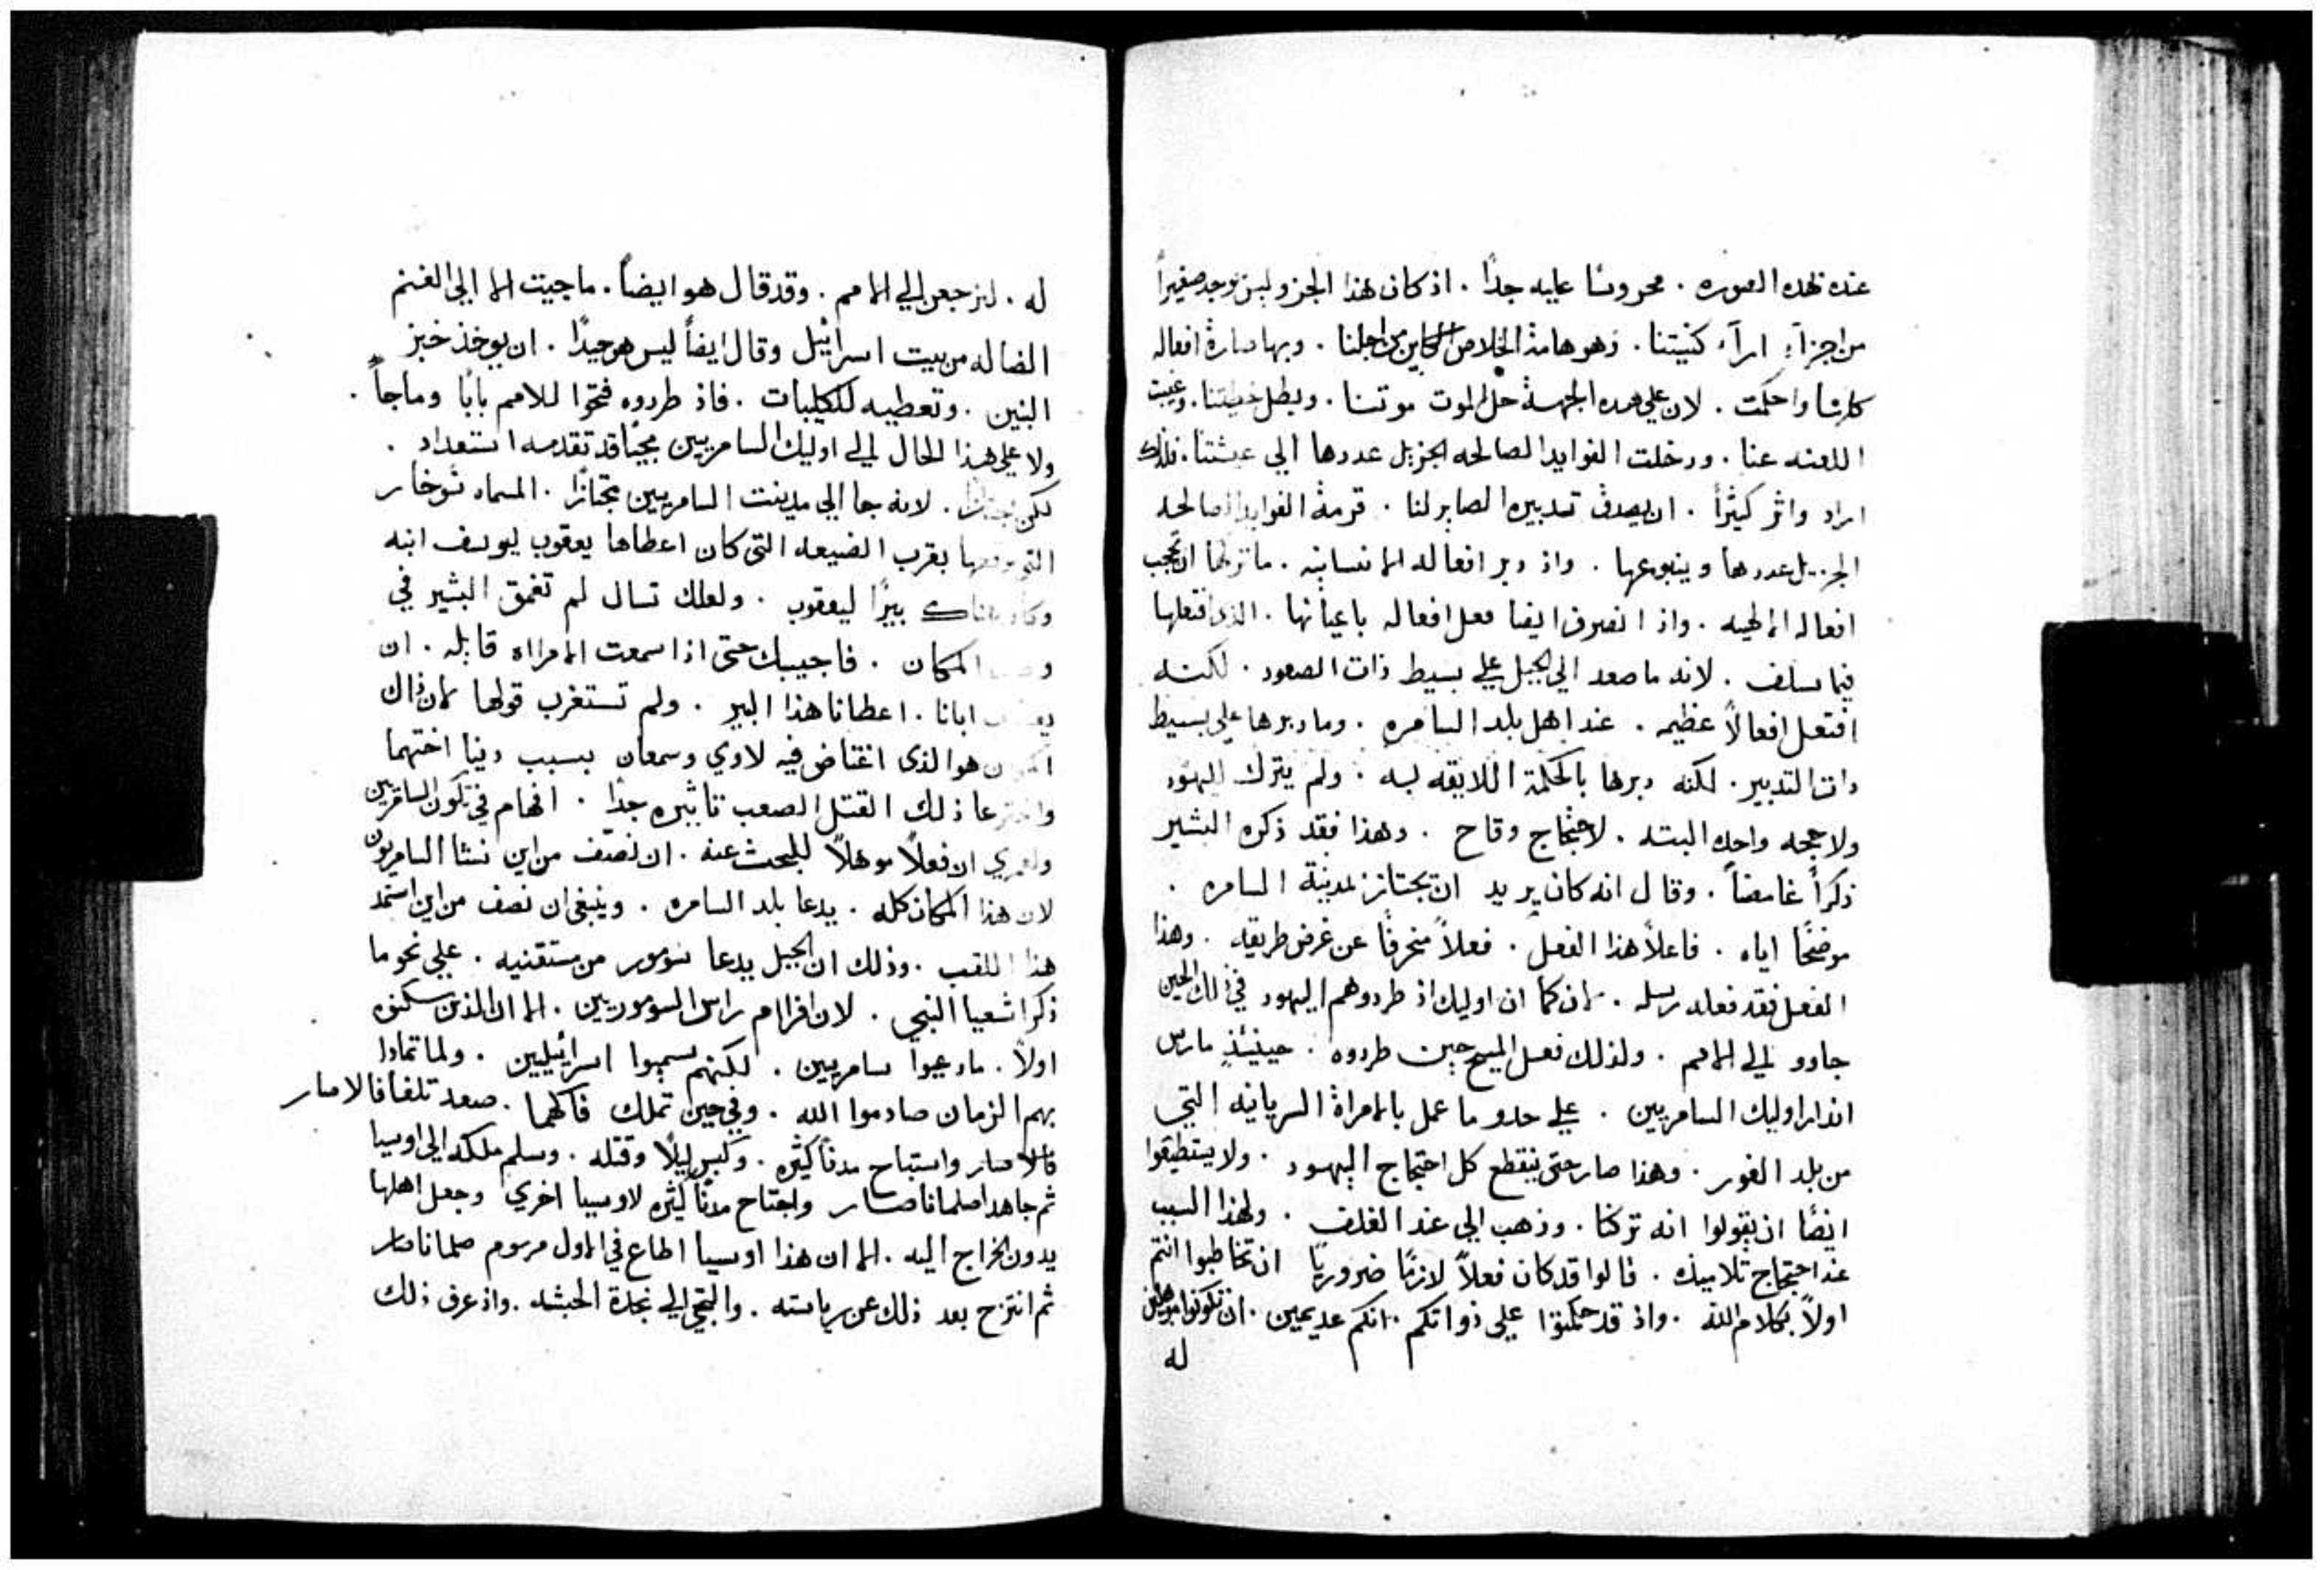 عنده بهذه الصوره . محروسًا عليه جدًا . اذ كان هذا الجزو ليس يوجد صغيرًا
من اجزآء ارآء كنيستنا . وهو هامة الخلاص الكاين من اجلنا . وبها صارة افعاله
كلها واحكمت . لان علي هده الجهة حل الموت موتنا . وبطل خطيتنا . وغيبت
اللعنه عنا . ودخلت الفوايد الصالحه الجزيل عددها الي عيشتنا . فلذلك
اراد واثر كثيرًا . ان يصدق تدبيره الصاير لنا . قرمة الفوايد الصالحه
الجزيل عددها وينبوعها . واذ دبر افعاله الانسانيه . ما تركها ان تحجب
افعاله الالهيه . واذ انصرف ايضا فعل افعاله باعيانها . الذي افتعلها
فيما سلف . لانه ما صعد الي الجبل علي بسيط ذات الصعود . لكنه
افتعل افعالاً عظيمه . عند اهل بلد السامره . وما دبرها علي بسيط
دات التدبير . لكنه دبرها بالحكمة اللايقه به . ولم يترك لليهود
ولا حجه واحده البته . لاحتجاج وقاح . وهذا فقد ذكره البشير
ذكرًا غامضًا . وقال انه كان يريد ان يجتاز لمدينة السامره .
موضحًا اياه . فاعلاً هذا الفعل . فعلاً منحرفًا عن غرض طريقه . وهذا
الفعل فقد فعله رسله . لان كما ان اوليك اذ طردوهم اليهود في ذلك الحين
جاوو الي الامم . ولذلك فعل المسيح حين طردوه . حينيئذٍ مارس
انذار اوليك السامريين . علي حدو ما عمل بالامراة السريانيه التي
من بلد الغور . وهذا صار حتي ينقطع كل احتجاج اليهود . ولا يستطيقوا
ايضًا ان يقولوا انه تركنا . وذهب الي عند الغلف . ولهذا السبب
عند احتجاج تلاميذه . قالوا قد كان فعلاً لازمًا ضروريًا ان تخاطبوا انتم
اولاً بكلام الله . واذ قد حكمتوا علي ذواتكم . انكم عديمين . ان تكونوا موهلين
له
له . لنرجعن الي الامم . وقد قال هو ايضًا . ما جيت الا الي الغنم
الضاله من بيت اسرائيل وقال ايضًا ليس هو جيدًا . ان يوخذ خبز
البنين . وتعطيه للكليبات . فاذ طردوه فتحوا للامم بابًا وما جآ .
ولا علي هذا الحال الي اوليك السامريين مجيًا قد تقدمه استعداد .
لكن مجتازًا . لانه جا الي مدينت السامريين مجتازًا . المسماه سوخار
التي موقعها بقرب الضيعه التي كان اعطاها يعقوب ليوسف ابنه
وكان هناك بيرًا ليعقوب . ولعلك تسال لم تعمق البشير في
المكان . فاجيبك حتي اذا سمعت الامراه قايله . ان
يعقوب ابانا . اعطانا هذا البير . ولم تستغرب قولها لان ذاك
المكان هو الذي اغتاض فيه لاوي وسمعان بسبب دينا اختهما
واخترعا ذلك القتل الصعب تاثيره جدًا . افهام في تكون السامريين
ولعمري ان فعلاً موهلاً للبحث عنه . ان نصف من اين نشا السامريون
لان هذا المكان كله . يدعا بلد السامره . وينبغي ان نصف من اين استمد
هذا اللقب . وذلك ان الجبل يدعا سومور من مستقنيه . علي نحو ما
ذكر اشعيا النبي . لان افرام راس السوموريين . الا ان الذين سكنوه
اولاً . ما دعيوا سامريين . لكنهم سميوا اسرائيليين . ولما تمادا
بهم الزمان صادموا الله . وفي حين تملك فاكهما . صعد تلغافالاصار
فالاصار واستباح مدنًا كثيره . وكبس ليلاً وقتله . وسلم ملكه الي اوسيا
ثم جاهد اصلمانا صار واجتاح مدنًا كثيره لاوسيا اخري وجعل اهلها
يدون الخراج اليه . الا ان هذا اوسيا اطاع في الاول مرسوم صلمانا صار
ثم انتزح بعد ذلك عن رياسته . والتجي الي نجدة الحبشه . واذ عرف ذلك